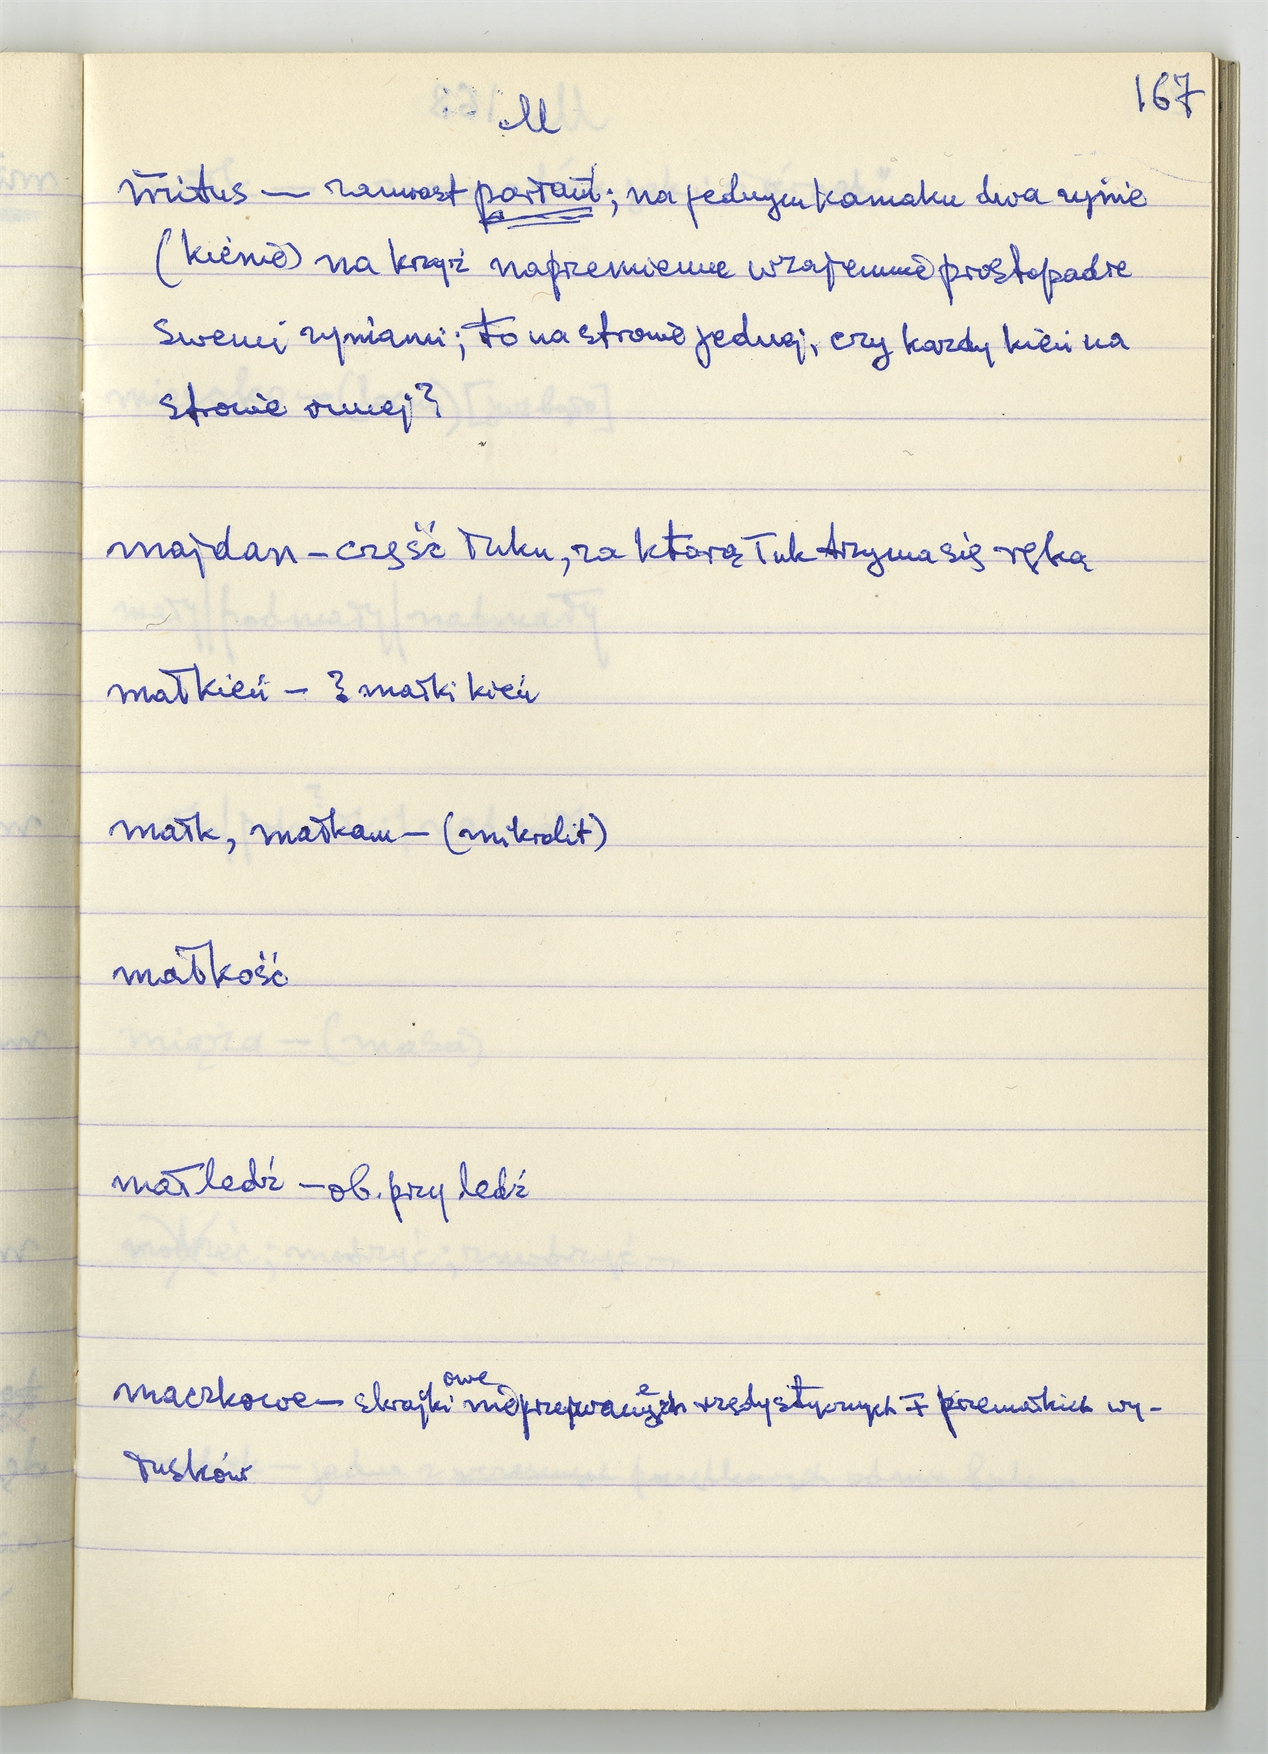 167
M
mitus — zamiast partaid; na jednym kamaku dwa zynie
(kienie) na krzyż naprzemienne wzajemnie prostopadłe
swemi zyniami; to na stronie jednej, czy każdy kień na
stronie innej?
majdan – część łuku, za którą łuk trzyma się ręką
małkień – ? małki kień
małk, małkam – (mikrolit)
małkość
małledź – ob. przy ledź
maczkowe – skrajki owe rzędystycznych ∓ przemałkich wy-
łusków